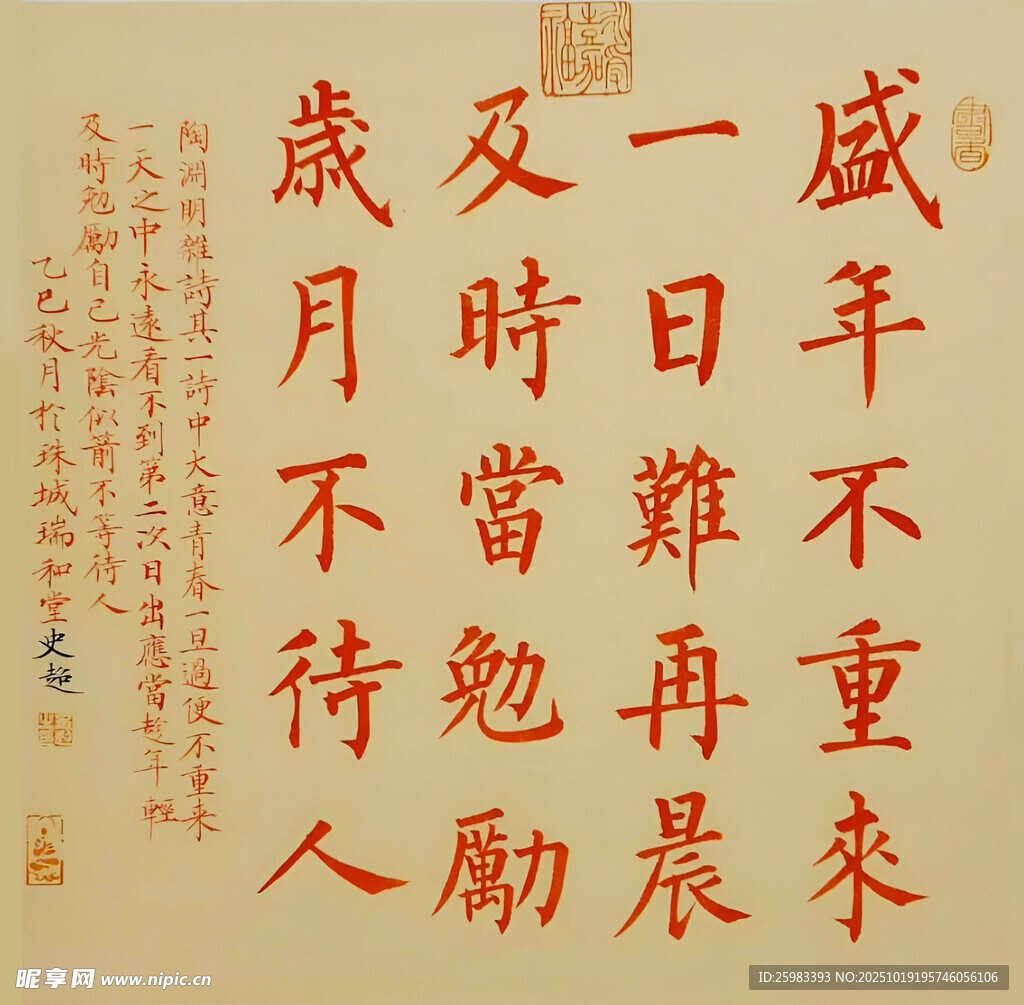 盛年不重來
一日難再晨
及時當勉勵
歲月不待人
陶淵明雜詩其一詩中大意青春一旦過便不重来
一天之中永遠看不到第二次日出應當趁年輕
及時勉勵自己光陰似箭不等待人
乙巳秋月於珠城瑞和堂史超
昵享网 www.nipic.cn
ID:25983393 NO:20251019195746056106